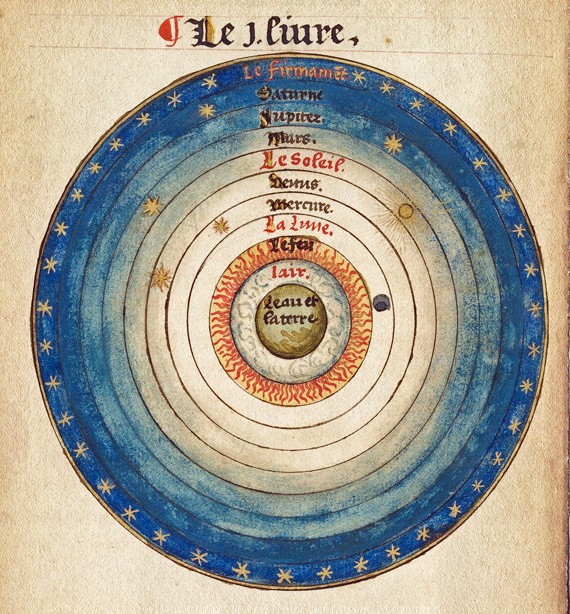 ¶ Le j. liure,
Le firmamēt
Saturne
Jupiter
Mars.
Le Soleil.
Venus.
Mercure.
La Lune,
Le feu
lair.
Leau et
la terre